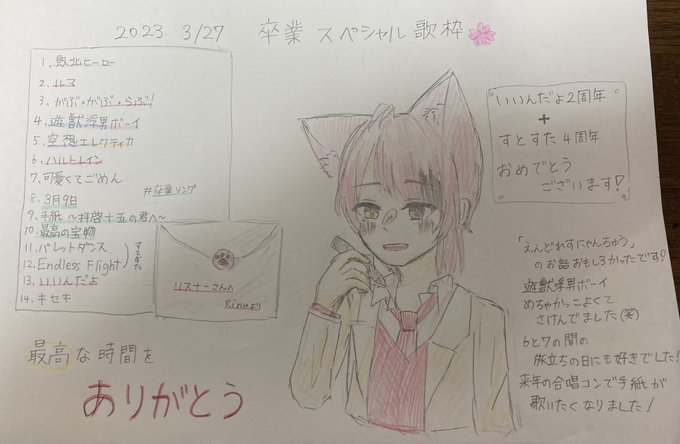 2023 3/27 卒業スペシャル歌枠
1. 敗北ヒーロー
2. ルマ
3. がぶ・がぶ・らぶ!
4. 遊獣浮男ボーイ
5. 空想エレクティカ
6. ハルトレイン
7. 可愛くてごめん
8. 3月9日
#卒業ソング
9. 手紙 ～拝啓十五の君へ～
10. 最高の宝物
11. パレットダンス
12. Endless Flight
13. いいんだよ
すとすた
14. キセキ
リスナーさんへ
Rinuより
最高な時間を
ありがとう
いいんだよ2周年
+
すとすた4周年
おめでとう
ございます!
「えんどれすにゃんちゅう」
のお話おもしろかったです!
遊獣浮男ボーイ
めちゃかっこよくて
さけんでました(笑)
6と7の間の
旅立ちの日にも好きでした!
来年の合唱コンで手紙が
歌いたくなりました!